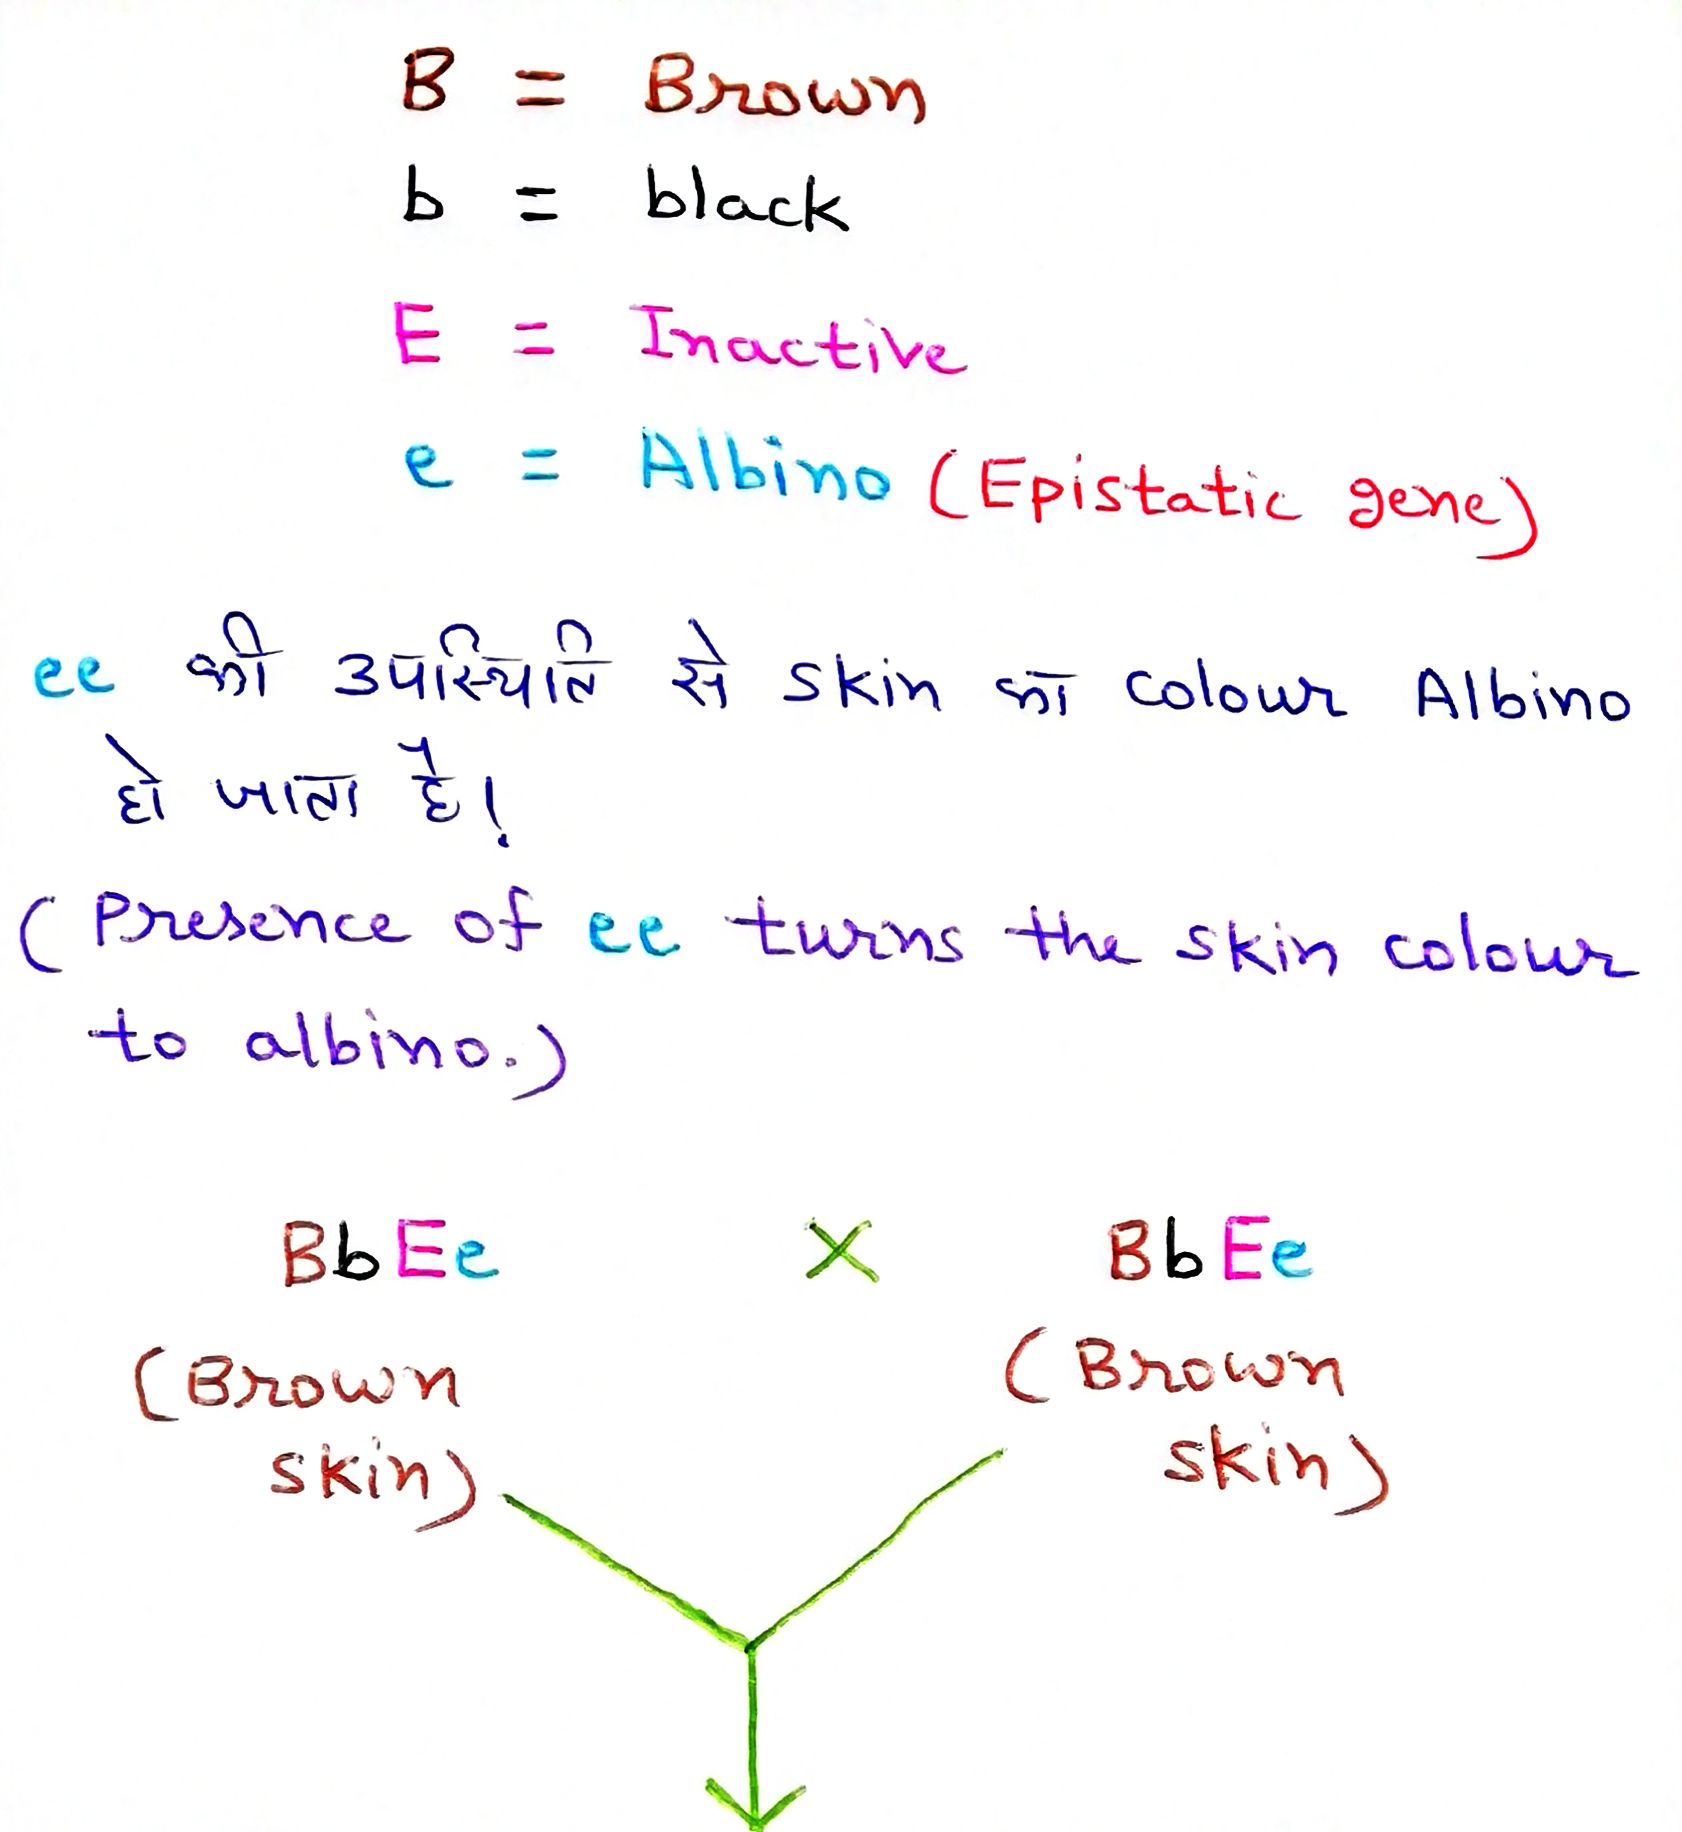 B = Brown
b = black
E = Inactive
e = Albino (Epistatic gene)
ee की उपस्थिति से skin का colour Albino
हो जाता है।
(Presence of ee turns the skin colour
to albino.)
BbEe × BbEe
(Brown skin) (Brown skin)